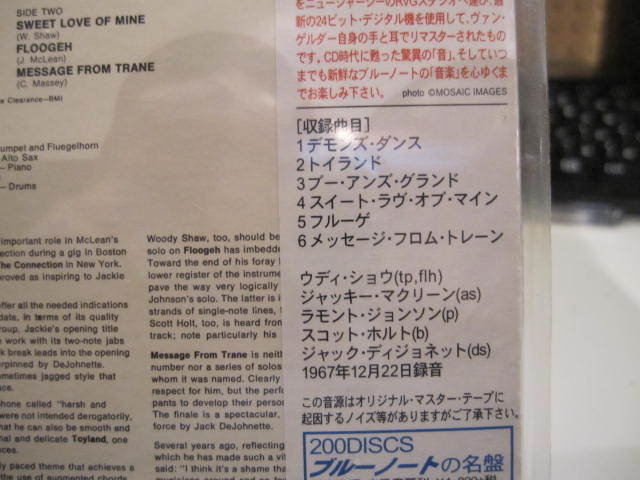 SIDE TWO
SWEET LOVE OF MINE
(W. Shaw)
FLOOGEH
(J. McLean)
MESSAGE FROM TRANE
(C. Massey)
Clearance—BMI
umpet and Fluegelhorn
Alto Sax
—Piano
—Drums
important role in McLean's
ection during a gig in Boston
The Connection in New York.
proved as inspiring to Jackie
offer all the needed indications
date, in terms of its quality
group. Jackie's opening title
e work with its two-note jabs
k break leads into the opening
erpinned by DeJohnette.
metimes jagged style that
ce.
phone called "harsh and
were not intended derogatorily,
hat he can also be smooth and
nal and delicate Toyland, one
nces.
ly paced theme that achieves a
the use of augmented chords
Woody Shaw, too, should be
solo on Floogeh has imbedde
Toward the end of his foray
lower register of the instrume
pave the way very logically
Johnson's solo. The latter is i
strands of single-note lines,
Scott Holt, too, is heard from
track; note particularly his
Message From Trane is neith
number nor a series of solos
whom it was named. Clearly
respect for him, but the perfo
pants to develop their person
The finale is a spectacular,
force by Jack DeJohnette.
Several years ago, reflecting
which he has made such a vit
said: "I think it's a shame tha
をニュージャージーのRVGスタジオへ運び、最
新の24ビット・デジタル機を使用して、ヴァン・
ゲルダー自身の手と耳でリマスターされたもの
です。CD時代に甦った驚異の「音」、そしていつ
までも新鮮なブルーノートの「音楽」を心ゆくま
でお楽しみ下さい。 photo ©MOSAIC IMAGES
[収録曲目]
1 デモンズ・ダンス
2 トイランド
3 ブー・アンズ・グランド
4 スイート・ラヴ・オブ・マイン
5 フルーゲ
6 メッセージ・フロム・トレーン
ウディ・ショウ(tp,flh)
ジャッキー・マクリーン(as)
ラモント・ジョンソン(p)
スコット・ホルト(b)
ジャック・ディジョネット(ds)
1967年12月22日録音
この音源はオリジナル・マスター・テープに
起因するノイズ等がありますがご了承下さい。
200DISCS
ブルーノートの名盤